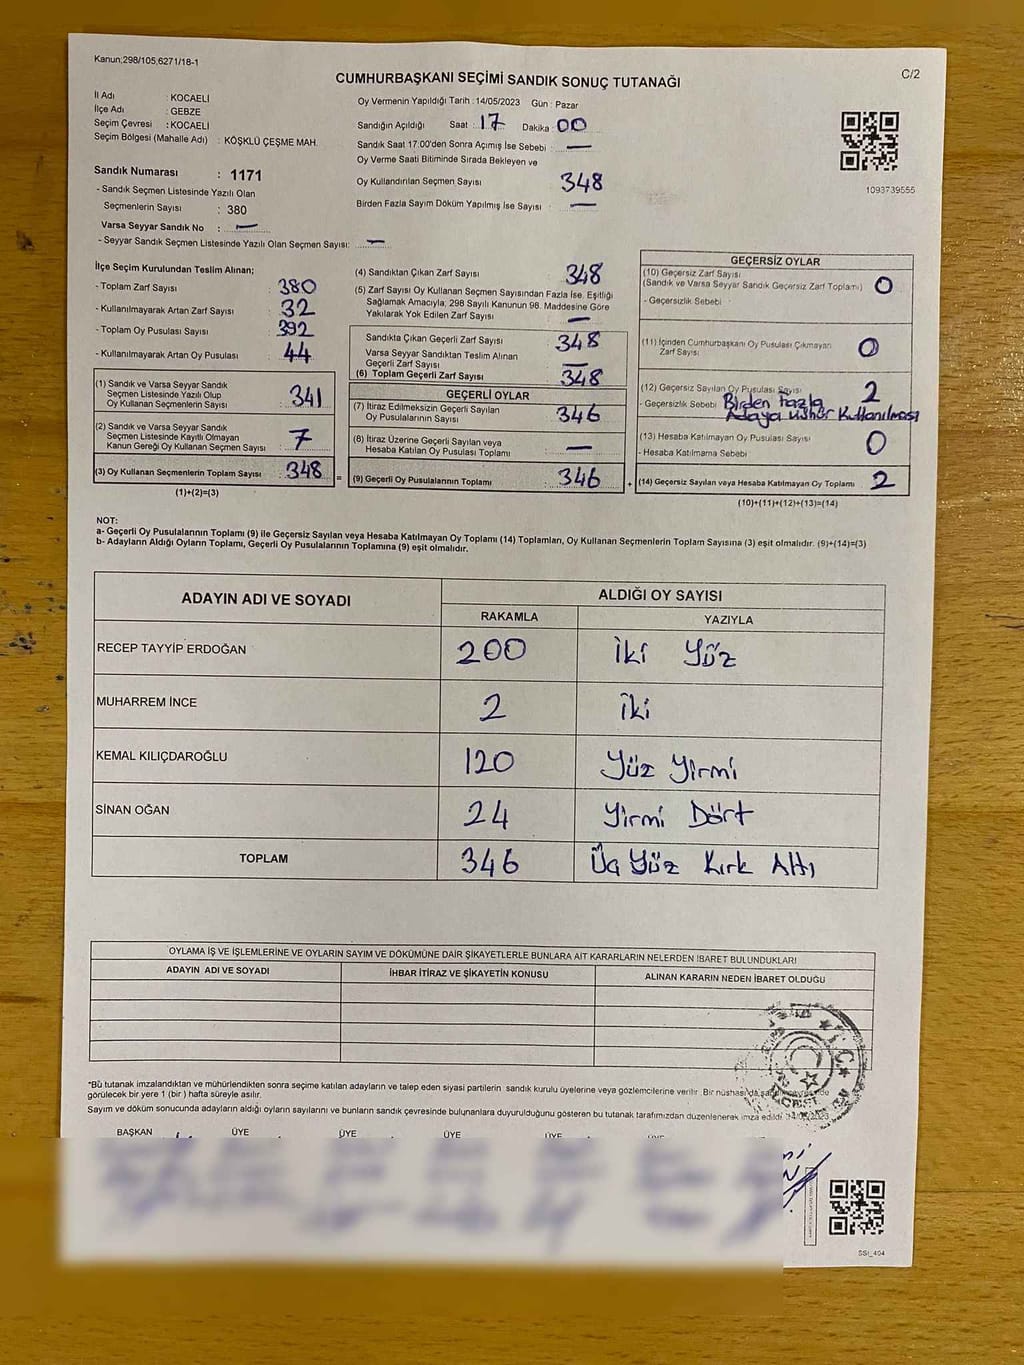 Kanun;298/105,6271/18-1
CUMHURBAŞKANI SEÇİMİ SANDIK SONUÇ TUTANAĞI
C/2
İl Adı : KOCAELİ
İlçe Adı : GEBZE
Seçim Çevresi : KOCAELİ
Seçim Bölgesi (Mahalle Adı) : KÖŞKLÜ ÇEŞME MAH.
Sandık Numarası : 1171
- Sandık Seçmen Listesinde Yazılı Olan
Seçmenlerin Sayısı : 380
Varsa Seyyar Sandık No : —
- Seyyar Sandık Seçmen Listesinde Yazılı Olan Seçmen Sayısı: —
Oy Vermenin Yapıldığı Tarih : 14/05/2023 Gün : Pazar
Sandığın Açıldığı Saat : 17 Dakika : 00
Sandık Saat 17:00'den Sonra Açımış İse Sebebi : —
Oy Verme Saati Bitiminde Sırada Bekleyen ve
Oy Kullandırılan Seçmen Sayısı 348
Birden Fazla Sayım Döküm Yapılmış İse Sayısı : —
1093739555
İlçe Seçim Kurulundan Teslim Alınan;
- Toplam Zarf Sayısı : 380
- Kullanılmayarak Artan Zarf Sayısı : 32
- Toplam Oy Pusulası Sayısı : 392
- Kullanılmayarak Artan Oy Pusulası : 44
(1) Sandık ve Varsa Seyyar Sandık
Seçmen Listesinde Yazılı Olup
Oy Kullanan Seçmenlerin Sayısı : 341
(2) Sandık ve Varsa Seyyar Sandık
Seçmen Listesinde Kayıtlı Olmayan
Kanun Gereği Oy Kullanan Seçmen Sayısı : 7
(3) Oy Kullanan Seçmenlerin Toplam Sayısı : 348 =
(1)+(2)=(3)
(4) Sandıktan Çıkan Zarf Sayısı 348
(5) Zarf Sayısı Oy Kullanan Seçmen Sayısından Fazla İse, Eşitliği
Sağlamak Amacıyla; 298 Sayılı Kanunun 98. Maddesine Göre
Yakılarak Yok Edilen Zarf Sayısı : —
Sandıkta Çıkan Geçerli Zarf Sayısı : 348
Varsa Seyyar Sandıktan Teslim Alınan
Geçerli Zarf Sayısı : —
(6) Toplam Geçerli Zarf Sayısı : 348
GEÇERLİ OYLAR
(7) İtiraz Edilmeksizin Geçerli Sayılan
Oy Pusulalarının Sayısı : 346
(8) İtiraz Üzerine Geçerli Sayılan veya
Hesaba Katılan Oy Pusulası Toplamı : —
(9) Geçerli Oy Pusulalarının Toplamı : 346 +
GEÇERSİZ OYLAR
(10) Geçersiz Zarf Sayısı
(Sandık ve Varsa Seyyar Sandık Geçersiz Zarf Toplamı) : 0
- Geçersizlik Sebebi :
(11) İçinden Cumhurbaşkanı Oy Pusulası Çıkmayan
Zarf Sayısı : 0
(12) Geçersiz Sayılan Oy Pusulası Sayısı : 2
- Geçersizlik Sebebi Birden fazla
Adaya mühür Kullanılması
(13) Hesaba Katılmayan Oy Pusulası Sayısı : 0
- Hesaba Katılmama Sebebi
(14) Geçersiz Sayılan veya Hesaba Katılmayan Oy Toplamı : 2
(10)+(11)+(12)+(13)=(14)
NOT:
a- Geçerli Oy Pusulalarının Toplamı (9) ile Geçersiz Sayılan veya Hesaba Katılmayan Oy Toplamı (14) Toplamları, Oy Kullanan Seçmenlerin Toplam Sayısına (3) eşit olmalıdır. (9)+(14)=(3)
b- Adayların Aldığı Oyların Toplamı, Geçerli Oy Pusulalarının Toplamına (9) eşit olmalıdır.
ADAYIN ADI VE SOYADI
ALDIĞI OY SAYISI
RAKAMLA YAZIYLA
RECEP TAYYİP ERDOĞAN 200 İki Yüz
MUHARREM İNCE 2 İki
KEMAL KILIÇDAROĞLU 120 Yüz Yirmi
SİNAN OĞAN 24 Yirmi Dört
TOPLAM 346 Üç Yüz Kırk Altı
OYLAMA İŞ VE İŞLEMLERİNE VE OYLARIN SAYIM VE DÖKÜMÜNE DAİR ŞİKAYETLERLE BUNLARA AİT KARARLARIN NELERDEN İBARET BULUNDUKLARI
ADAYIN ADI VE SOYADI İHBAR İTİRAZ VE ŞİKAYETİN KONUSU ALINAN KARARIN NEDEN İBARET OLDUĞU
*Bu tutanak imzalandıktan ve mühürlendikten sonra seçime katılan adayların ve talep eden siyasi partilerin sandık kurulu üyelerine veya gözlemcilerine verilir. Bir nüshası da
görülecek bir yere 1 (bir ) hafta süreyle asılır.
Sayım ve döküm sonucunda adayların aldığı oyların sayılarını ve bunların sandık çevresinde bulunanlara duyurulduğunu gösteren bu tutanak tarafımızdan düzenlenerek imza edildi.
T.C.
BAŞKAN ÜYE ÜYE ÜYE ÜYE ÜYE
SSI_404